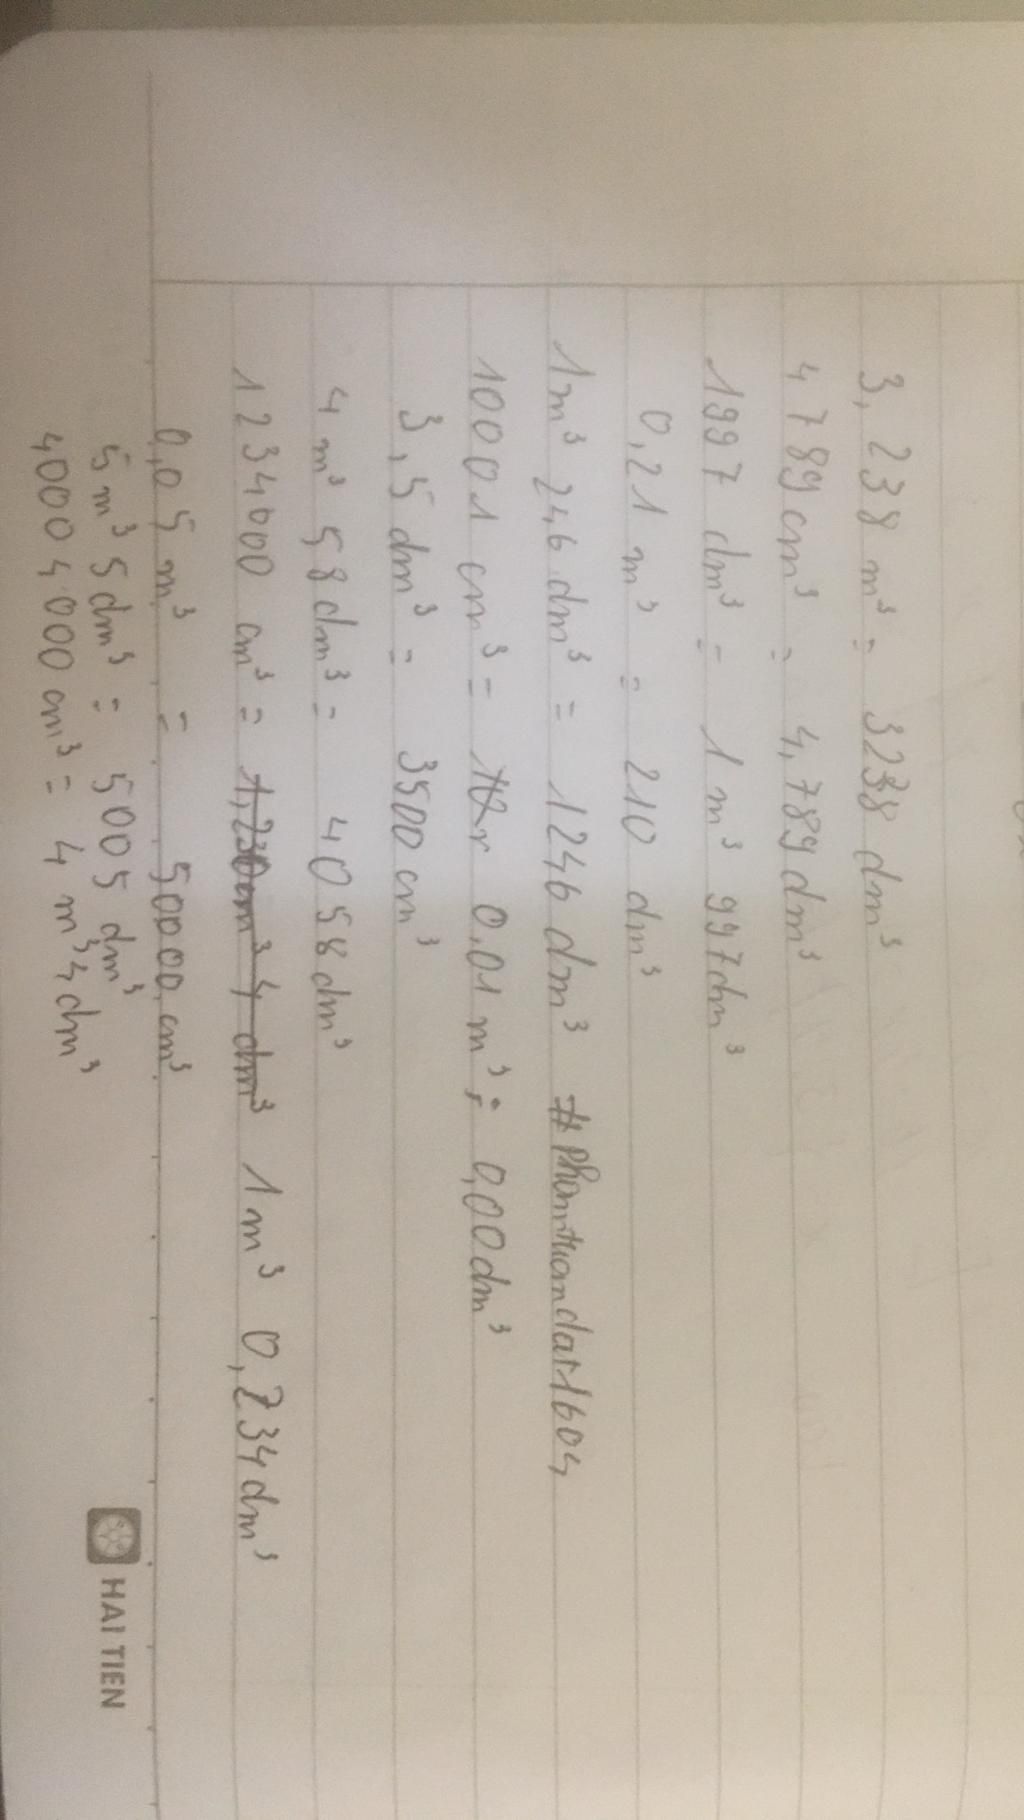 3,238 m³ = 3238 dm³
4789cm³ = 4,789dm³
1997 dm³ = 1m³ 997dm³
0,21 m³ = 210 dm³
1m³ 246 dm³ = 1246 dm³
10001 cm³ = 0,01 m³; 0,00dm³
3,5dm³ = 3500cm³
4m³ 58dm³ = 4058dm³
1234000 cm³ = 1m³ 0,234dm³
0,05m³ = 50000cm³
5m³ 5dm³ = 5005 dm³
40004000cm³ = 4 m³4dm³
HAI TIEN